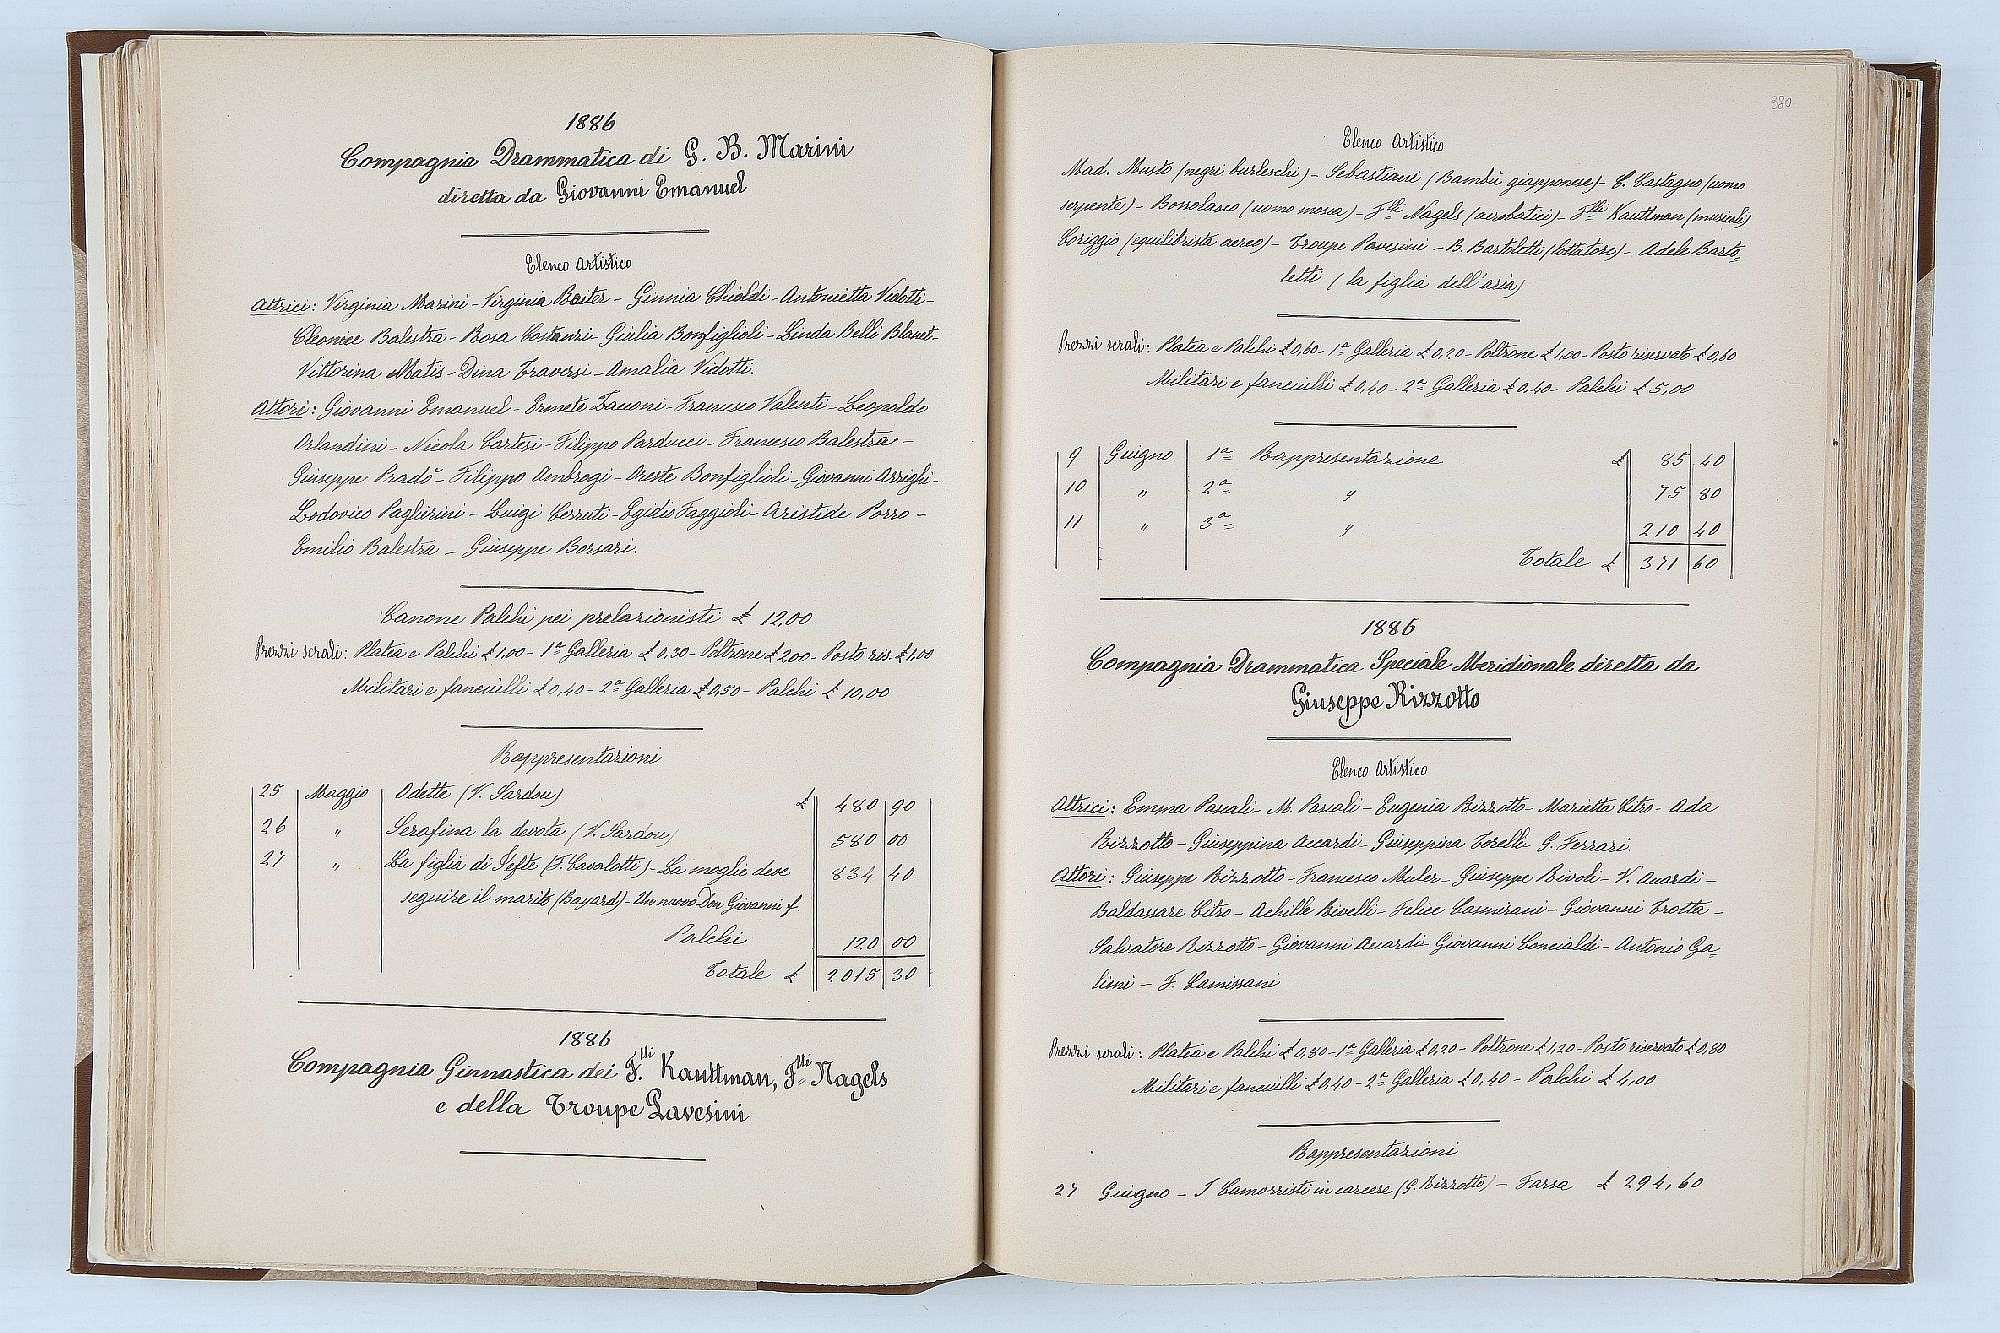 1886
Compagnia Drammatica di G. B. Marini
diretta da Giovanni Emanuel
Elenco Artistico
Attrici: Virginia Marini - Virginia Boiter - Ginnia Chioldi - Antonietta Vidotti -
Cleonice Balestra - Rosa Costanzi - Giulia Bonfiglioli - Linda Belli Blanet -
Vittorina Matis - Dina Traversi - Amalia Vidotti.
Attori: Giovanni Emanuel - Ermete Zacconi - Francesco Valenti - Leopoldo
Orlandini - Nicola Cortesi - Filippo Parducci - Francesco Balestra -
Giuseppe Pradò - Filippo Ambrogi - Oreste Bonfiglioli - Giovanni Arrighi -
Lodovico Pagliarini - Luigi Cerruti - Egidio Faggioli - Aristide Porro -
Emilio Balestra - Giuseppe Borsari.
Canone Palchi pei prelazionisti £ 12,00
Prezzi serali: Platea e Palchi £ 1,00 - 1ª Galleria £ 0,30 - Poltrone £ 2,00 - Posto ris. £ 1,00
Militari e fanciulli £ 0,40 - 2ª Galleria £ 0,50 - Palchi £ 10,00
Rappresentazioni
25 Maggio Odette (V. Sardou) £ 480 90
26 " Serafina la devota (V. Sardou) 580 00
27 " La figlia di Jefte (F. Cavalotti) - La moglie deve 834 40
seguire il marito (Bayard) - Un nuovo Don Giovanni f
Palchi 120 00
Totale £ 2015 30
1886
Compagnia Ginnastica dei F.lli Kauttman, F.lli Nagels
e della Troupe Pavesini
380
Elenco Artistico
Mad. Musto (negri burleschi) - Sebastiani (Bambù giapponese) - C. Castagno (uomo
serpente) - Borsolasco (uomo mosca) - F.lli Nagels (acrobatici) - F.lli Kauttman (musicali)
Coriggio (equilibrista aereo) - Troupe Pavesini - B. Bartoletti (lottatore) - Adele Barto-
letti (la figlia dell'aria)
Prezzi serali: Platea e Palchi £ 0,60 - 1ª Galleria £ 0,20 - Poltrone £ 1,00 - Posto riservato £ 0,60
Militari e fanciulli £ 0,40 - 2ª Galleria £ 0,40 - Palchi £ 5,00
9 Giugno 1ª Rappresentazione £ 85 40
10 " 2ª " 75 80
11 " 3ª " 210 40
Totale £ 371 60
1886
Compagnia Drammatica Speciale Meridionale diretta da
Giuseppe Rizzotto
Elenco Artistico
Attrici: Emma Pascali - M. Pascali - Eugenia Rizzotto - Marietta Citro - Ada
Rizzotto - Giuseppina Accardi - Giuseppina Torelli G. Ferrari
Attori: Giuseppe Rizzotto - Francesco Muler - Giuseppe Rivoli - V. Acardi -
Baldassare Citro - Achille Civelli - Felice Camirani - Giovanni Trotta -
Salvatore Rizzotto - Giovanni Accardi - Giovanni Concialdi - Antonio Ga-
lioni - F. Camissani
Prezzi serali: Platea e Palchi £ 0,80 - 1ª Galleria £ 0,20 - Poltrone £ 1,20 - Posto riservato £ 0,80
Militari e fanciulli £ 0,40 - 2ª Galleria £ 0,40 - Palchi £ 4,00
Rappresentazioni
27 Giugno - I Camorristi in carcere (G. Rizzotto) - Farsa £ 294,60